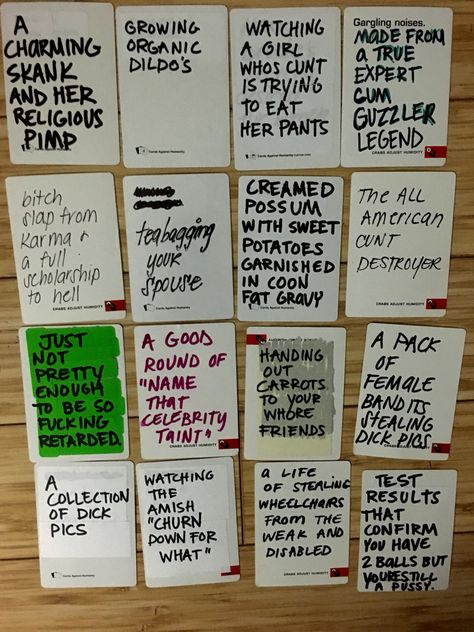 A
CHARMING
SKANK
AND HER
RELIGIOUS
PIMP
GROWING
ORGANIC
DILDO'S
Cards Against Humanity
WATCHING
A GIRL
WHOS CUNT
IS TRYING
TO EAT
HER PANTS
Cards Against Humanity
Gargling noises.
MADE FROM
A TRUE
EXPERT
CUM
GUZZLER
LEGEND
CRABS ADJUST HUMIDITY
bitch
slap from
Karma &
a full
scholarship
to hell
CRABS ADJUST HUMIDITY
teabagging
your
spouse
Cards Against Humanity
CREAMED
POSSUM
WITH SWEET
POTATOES
GARNISHED
IN COON
FAT GRAVY
The All
American
CUNT
DESTROYER
CRABS ADJUST HUMIDITY
JUST
NOT
PRETTY
ENOUGH
TO BE SO
FUCKING
RETARDED.
A GOOD
ROUND OF
"NAME
THAT
CELEBRITY
TAINT"
CRABS ADJUST HUMIDITY
HANDING
OUT
CARROTS
TO YOUR
WHORE
FRIENDS
A PACK
OF
FEMALE
BANDITS
STEALING
DICK PICS
CRABS ADJUST HUMIDITY
A
COLLECTION
OF DICK
PICS
Cards Against Humanity
WATCHING
THE
AMISH
"CHURN
DOWN FOR
WHAT"
CRABS ADJUST HUMIDITY
a LIFE
OF STEALING
WHEELCHAIRS
FROM THE
WEAK AND
DISABLED
CRABS ADJUST HUMIDITY
TEST
RESULTS
THAT
CONFIRM
YOU HAVE
2 BALLS BUT
YOURE STILL
A PUSSY.